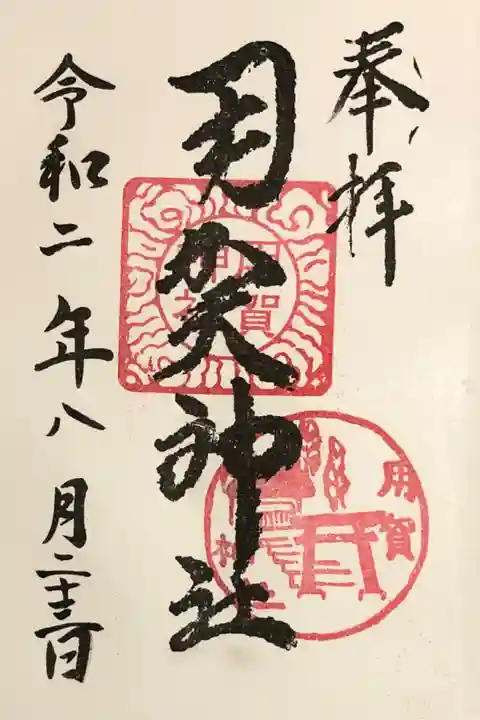 奉拝
用賀神社
令和二年八月二十三日
用賀神社
用賀神社